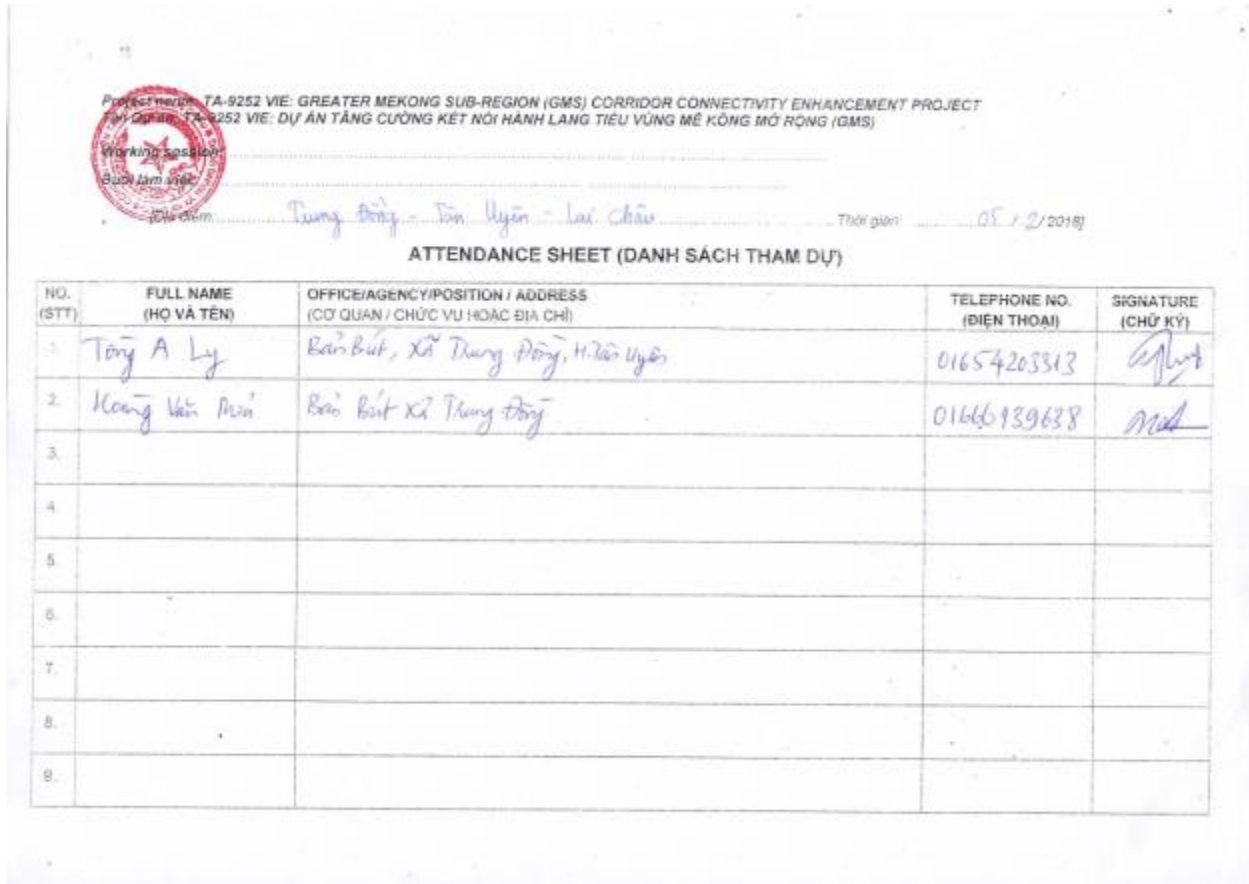 Project name: TA-9252 VIE: GREATER MEKONG SUB-REGION (GMS) CORRIDOR CONNECTIVITY ENHANCEMENT PROJECT
Tên Dự án: TA-9252 VIE: DỰ ÁN TĂNG CƯỜNG KẾT NỐI HÀNH LANG TIỂU VÙNG MÊ KÔNG MỞ RỘNG (GMS)
Working session:
Buổi làm việc:
(Địa điểm: Trung Đồng - Tân Uyên - Lai Châu Thời gian: 05 / 2/ 2018)
ATTENDANCE SHEET (DANH SÁCH THAM DỰ)
NO. FULL NAME OFFICE/AGENCY/POSITION / ADDRESS TELEPHONE NO. SIGNATURE
(STT) (HỌ VÀ TÊN) (CƠ QUAN / CHỨC VỤ HOẶC ĐỊA CHỈ) (ĐIỆN THOẠI) (CHỮ KÝ)
1. Tòng A Ly Bản Bút, Xã Trung Đồng, H. Tân Uyên 01654203313
2. Hoàng Văn Bản Bút Xã Trung Đồng 01666939638
3.
4.
5.
6.
7.
8.
9.